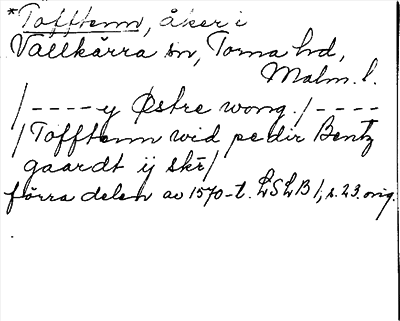 *Tofftenn, åker i
Vallkärra sn, Torna hd,
Malm. l.
/----y Østre wong./----
/Tofftenn wid pedir Bentz
gaardt ij skr/
förra delen av 1570-t. LSLB 1, s. 23. orig.